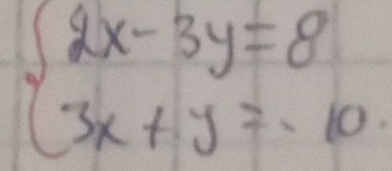 2x - 3y = 8
3x + y = - 10.